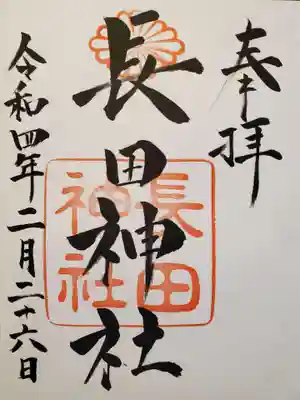 奉拝
長田神社
長田
神社
令和四年二月二十六日